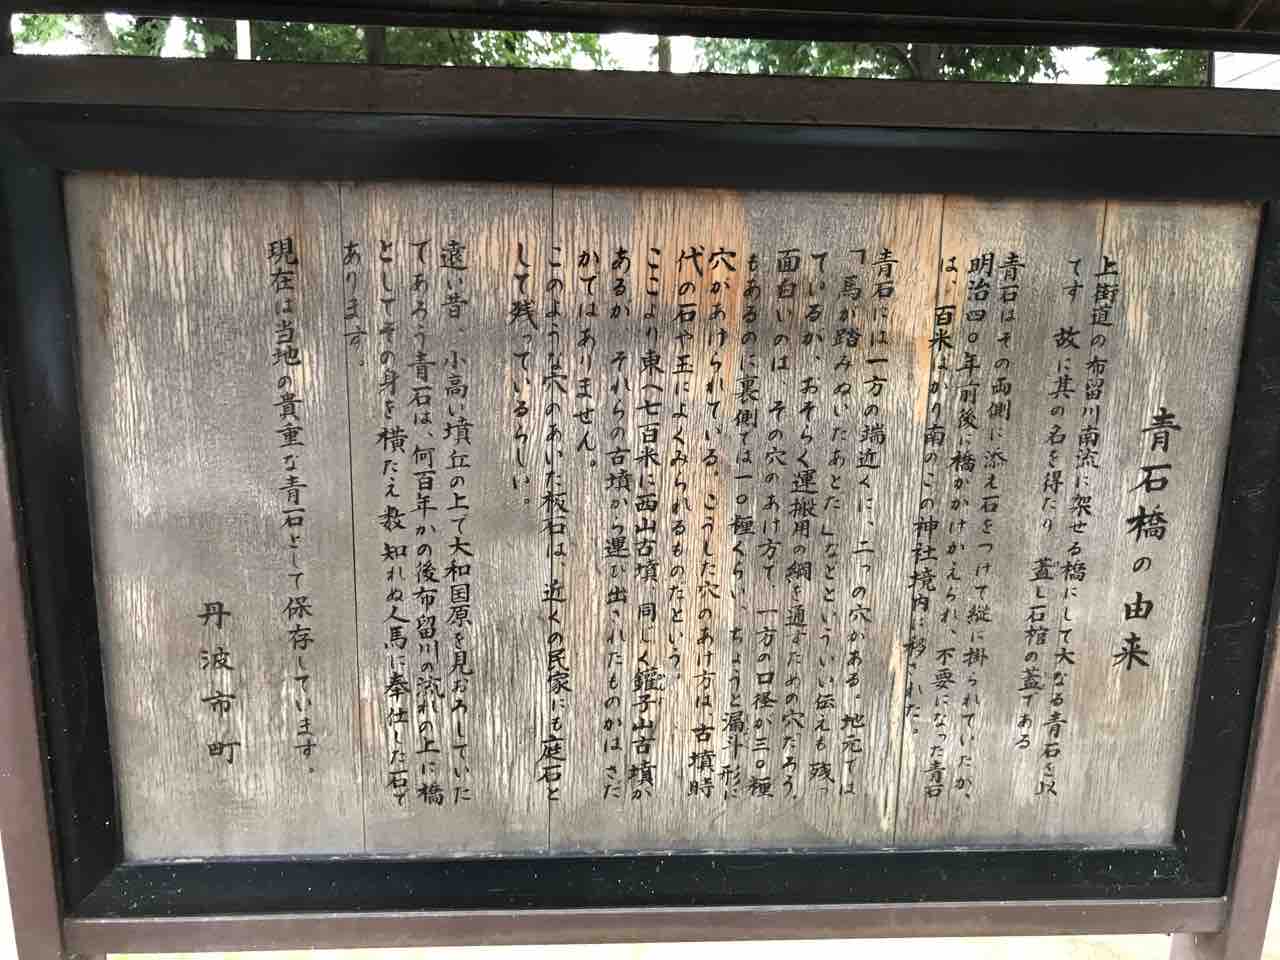 青石橋の由来
上街道の布留川南流に架せる橋にして大なる青石を以
てす 故に其の名を得たり 蓋し石棺の蓋である
青石はその両側に添え石をつけて縦に掛られていたが、
明治四〇年前後に橋がかけかえられ、不要になった青石
は、百米ばかり南のこの神社境内に移された。
青石には一方の端近くに、二つの穴がある。地元では
「馬が踏みぬいたあとだ」などといういい伝えも残っ
ているが、おそらく運搬用の綱を通すための穴だろう。
面白いのは、その穴のあけ方で、一方の口径が三〇糎
もあるのに裏側では一〇糎くらい、ちょうど漏斗形に
穴があけられている。こうした穴のあけ方は古墳時
代の石や玉によくみられるものだという。
ここより東へ七百米に西山古墳、同じく鑵子山古墳が
あるが それらの古墳から運び出されたものかはさだ
かではありません。
このような穴のあいた板石は、近くの民家にも庭石と
して残っているらしい。
遠い昔、小高い墳丘の上で大和国原を見おろしていた
であろう青石は、何百年かの後布留川の流れの上に橋
としてその身を横たえ数知れぬ人馬に奉仕した石で
あります。
現在は当地の貴重な青石として保存しています。
丹波市町